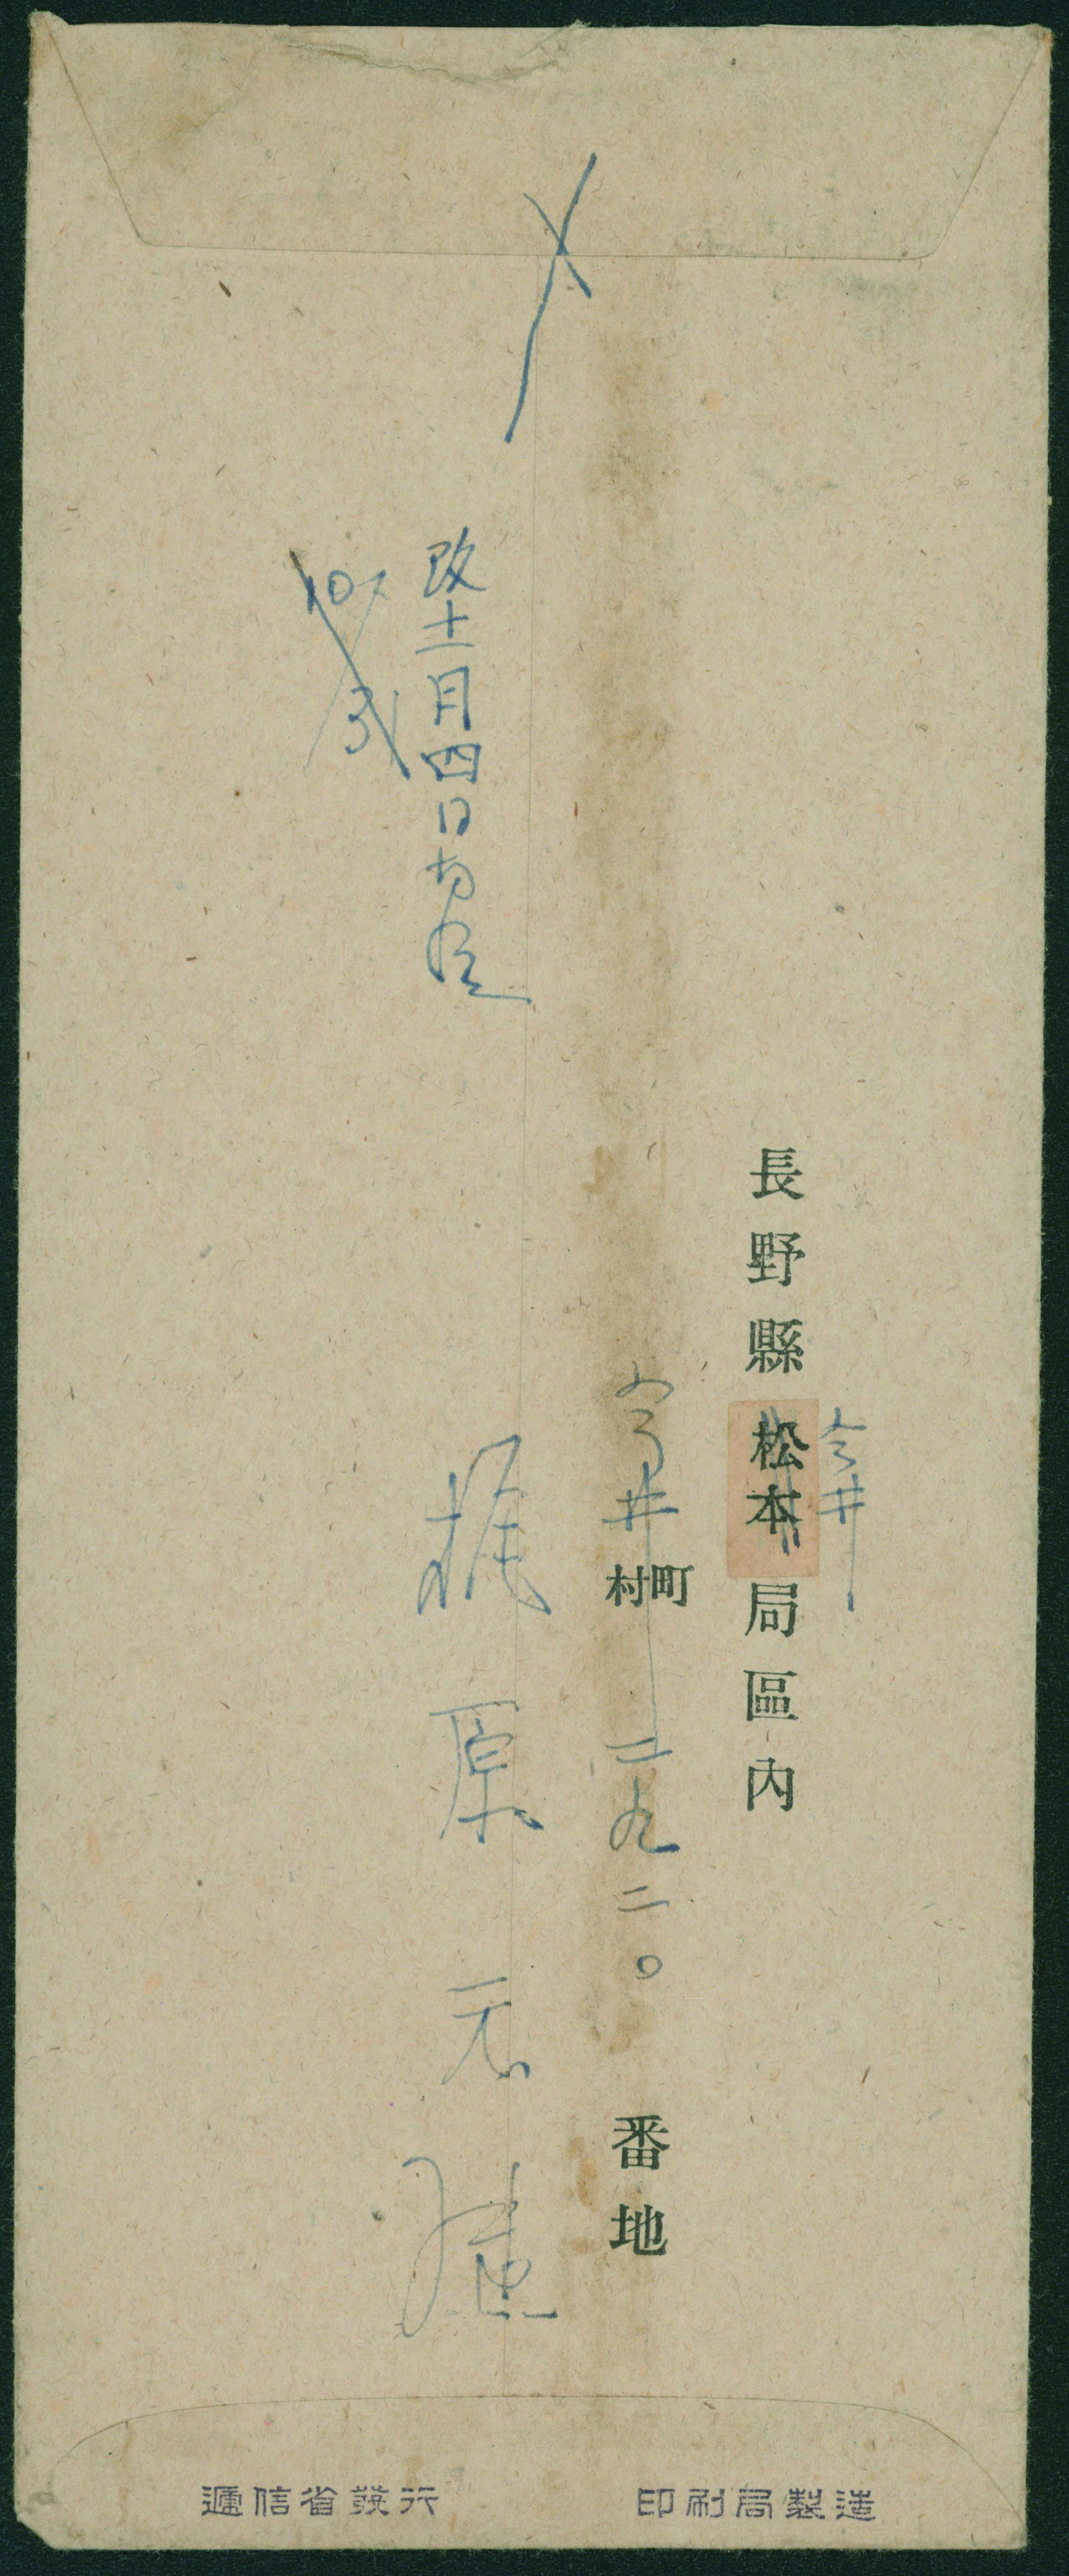 〆
今井
長野縣松本局區内
今井町村二九二〇番地
梶原元
改十一月四日
10/31
印刷局製造
遞信省發行